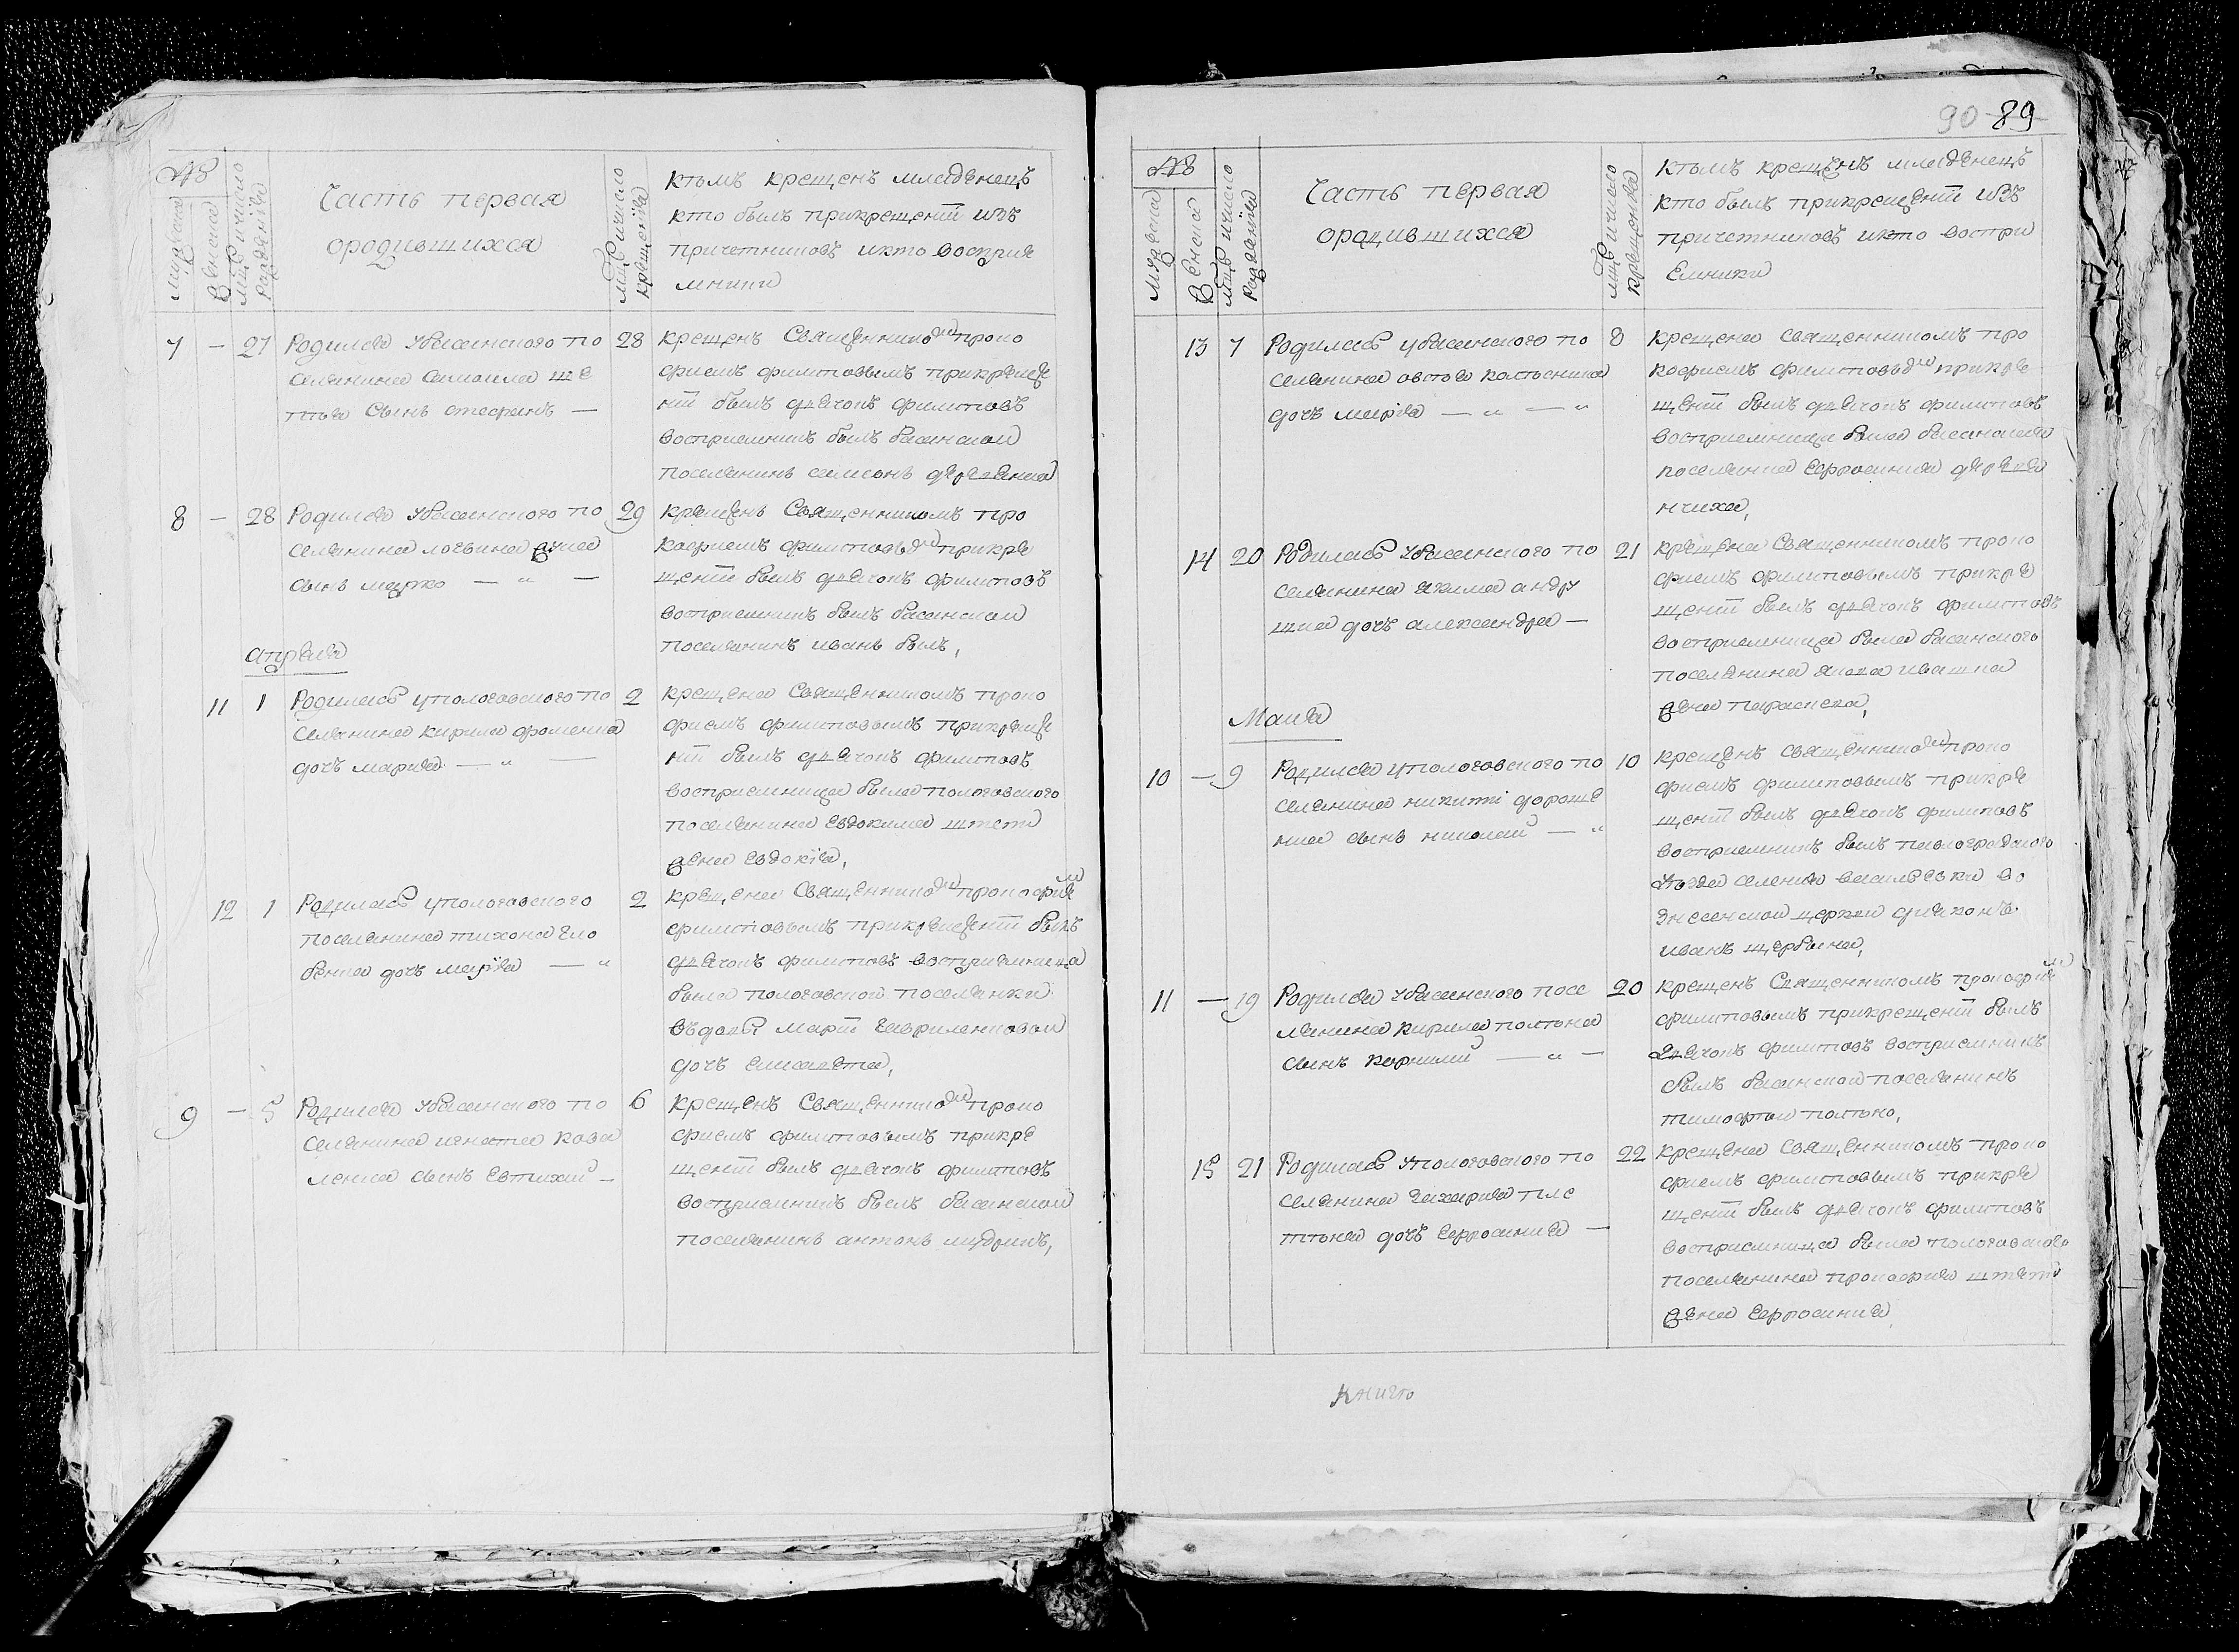 90 89
№
Мужеска
Женска
мцъ и число
Рожденїя
Часть первая
ородившихся
мцъ и число
крещенїя
Кѣмъ крещенъ младенецъ
кто былъ прикрещенїи изъ
причетниковъ икто восприе
мники
7 — 27 Родился Убасанского по
селянина самоила ше
сынъ стефанъ —
28 крещенъ Священникомъ проко
фиемъ филиповымъ прикреще
нїи былъ дьячокъ филиповъ
восприемникъ былъ басанскои
поселянинъ самсонъ
8 — 28 Родился Убасанского по
селянина логвина
сынъ марко — „ —
29 крещенъ Священникомъ про
кофиемъ филиповымъ прикре
щенїи былъ дьячокъ филиповъ
восприемникъ былъ басанскои
поселянинъ иванъ билъ,
априля
11 1 Родилась упологовского по
селянина кирила фоменка
дочъ мариѧ — „ —
2 крещена Священникомъ проко
фиемъ филиповымъ прикреще
нїи былъ дьячокъ филиповъ
восприемница была пологовского
поселянина Евдокима
жена Евдокїя,
12 1 Родилась упологовского
поселянина тихона
дочъ марїя — „
2 крещена Священникомъ прокофие
филиповымъ прикрещенїи былъ
дьячокъ филиповъ восприемница
была пологовской поселянки
въдовы марїи гавриленковои
дочъ елисавета,
9 — 5 Родился Убасанского по
селянина игната кова
ленка сынъ Евтихии —
6 крещенъ Священникомъ проко
фиемъ филиповымъ прикре
щенїи былъ дьячокъ филиповъ
восприемникъ былъ басанскои
поселянинъ антонъ
№
Мужеска
Женска
мцъ и число
Рожденїя
Часть первая
ородившихся
мцъ и число
крещенїя
Кѣмъ крещенъ младенецъ
кто былъ прикрещенїи изъ
причетниковъ икто воспри
Емники
13 7 Родилась убасанского по
селянина
дочъ марїя — „ — „
8 крещена священникомъ про
кофиемъ филиповымъ прикре
щенїи былъ дьячокъ филиповъ
восприемница была басанская
поселянка Ефросиния деревя
нчиха,
14 20 Родилась Убасанского по
селянина якима андру
щка дочъ александра —
21 крещена Священникомъ проко
фиемъ филиповымъ прикре
щенїи былъ дьячокъ филиповъ
восприемница была басанского
поселянина якова ивашка
жена параскева,
Маия
10 — 9 Родился упологовского по
селянина никиты дороше
нка сынъ николай — „
10 крещенъ священникомъ проко
фиемъ филиповымъ прикре
щенїи былъ дьячокъ филиповъ
восприемникъ былъ павлоградского
уѣзда селения васильевки во
знесенской церкви дияконъ
иванъ щербина,
11 — 19 Родился Убасанского посе
лянина кирила
сынъ корнилий — „ —
20 крещенъ Священникомъ прокофие
филиповымъ прикрещенїи былъ
дьячокъ филиповъ восприемникъ
былъ басанскои поселянинъ
тимофей
15 21 Родилась Упологовского по
селянина захария пле
дочъ Ефросиния —
22 крещена Священникомъ проко
фиемъ филиповымъ прикре
щенїи былъ дьячокъ филиповъ
восприемница была пологовского
поселянина прокофия
жена Ефросиния